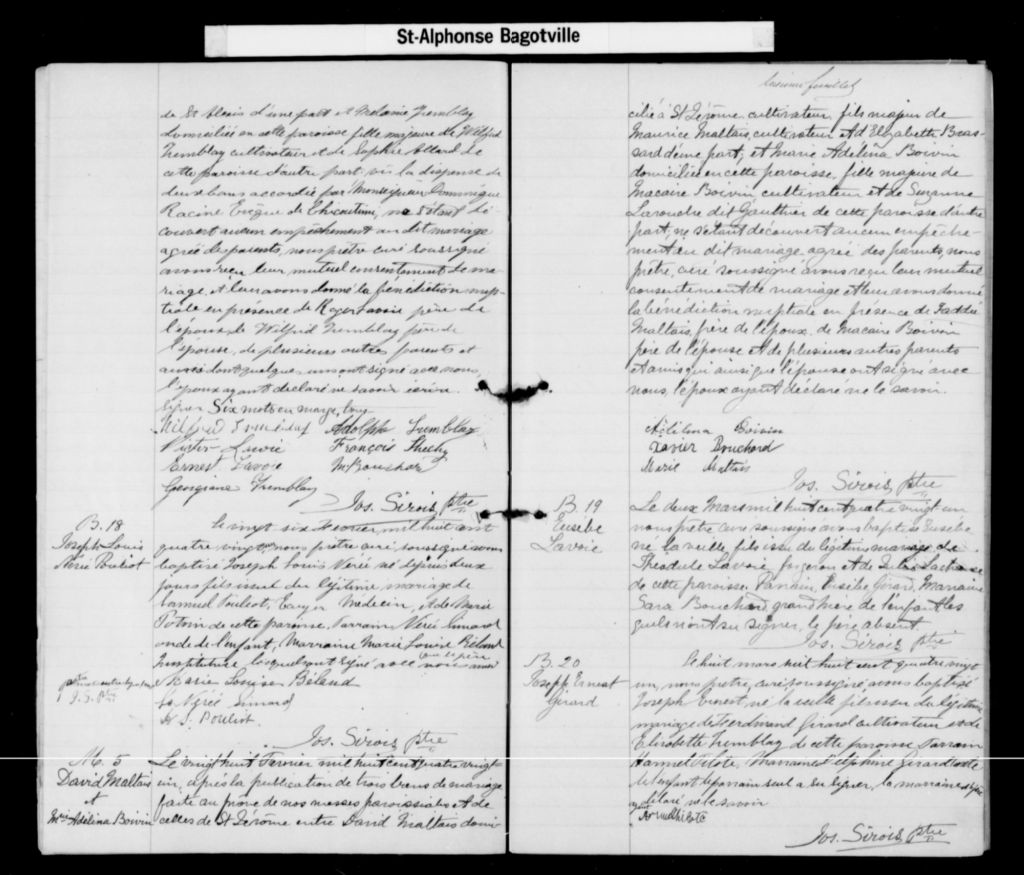 St-Alphonse Bagotville
de St Alexis d'une part et Mélanie Tremblay
domiciliée en cette paroisse fille majeure de Wilfrid
Tremblay cultivateur et de Sophie Allard de
cette paroisse d'autre part, vu la dispense de
deux bans accordée par Monseigneur Dominique
Racine Evêque de Chicoutimi, ne s'étant dé
couvert aucun empêchement au dit mariage
agréé des parents, nous prêtre curé soussigné
avons reçu leur mutuel consentement de ma-
riage et leur avons donné la bénédiction nup-
tiale en présence de Roger Lavoie père de
l'époux, de Wilfrid Tremblay père de
l'épouse, de plusieurs autres parents et
amis dont quelques uns ont signé avec nous,
l'époux ayant déclaré ne savoir écrire.
Six mots en marge bons
Wilfrid Tremblay Adolphe Tremblay
Lavoie François
Ernest Lavoie M Bouchard
Georgiane Tremblay
Jos. Sirois, ptre
B. 18
Joseph Louis
Nérée Pouliot
Le vingt six Fevrier mil huit cent
quatre vingt un nous prêtre curé soussigné avons
baptisé Joseph Louis Nérée né depuis deux
jours fils issu du légitime mariage de
Samuel Pouliot, Ecuyer Médecin, et de Marie
Potvin de cette paroisse. Parrain Nérée Simard
oncle de l'enfant, Marraine Marie Louise Béland
Institutrice lesquels ont signé avec nous
ainsi que le père
J. S. Ptre
Marie Louise Béland
Nérée Simard
S. Pouliot
Jos. Sirois, ptre
M. 5
David Maltais
et
Mie Adélina Boivin
Le vingt huit Fevrier mil huit cent quatre vingt
un, après la publication de trois bans de mariage
faite au prône de nos messes paroissiales et de
celles de St Jérôme entre David Maltais domi-
feuillet
cilié à St Jérôme cultivateur, fils majeur de
Maurice Maltais, cultivateur et d'Elizabeth Bras-
sard d'une part, et Marie Adélina Boivin
domiciliée en cette paroisse, fille majeure de
Macaire Boivin cultivateur et de Suzanne
Larouche dit Gauthier de cette paroisse d'autre
part, ne s'étant découvert aucun empêche-
ment au dit mariage, agréé des parents, nous
prêtre, curé soussigné avons reçu leur mutuel
consentement de mariage et leur avons donné
la bénédiction nuptiale en présence de
Maltais, père de l'époux, de Macaire Boivin
père de l'épouse et de plusieurs autres parents
et amis qui ainsi que l'épouse ont signé avec
nous, l'époux ayant déclaré ne le savoir.
Adélina Boivin
Xavier Bouchard
Marie Maltais
Jos. Sirois, ptre
B. 19
Eusèbe
Lavoie
Le deux Mars mil huit cent quatre vingt un
nous prêtre curé soussigné avons baptisé Eusèbe
né la veille, fils issu du légitime mariage de
Théodule Lavoie, forgeron et de Julie
de cette paroisse. Parrain, Eusèbe Girard, Marraine
Sara Bouchard grand'mère de l'enfant les
quels n'ont su signer, le père absent.
Jos. Sirois ptre
B. 20
Joseph Ernest
Girard
Le huit mars mil huit cent quatre vingt
un, nous prêtre, curé soussigné avons baptisé
Joseph Ernest, né la veille fils issu du légitime
mariage de Ferdinand Girard cultivateur et de
Elisabeth Tremblay de cette paroisse. Parrain
Pilote, Marraine Delphine Girard tante
de l'enfant, le parrain seul a su signer, la marraine et le père
ont déclaré ne le savoir
Jos. Sirois, ptre